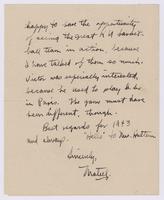 happy to have the opportunity
of seeing the great K.U. basket-
ball team in action, because
I have talked of them so much.
Victor was especially interested,
because he used to play b.b.
in Paris. The game must have
been different, though.
Best regards for 1943
and always. "Hello" to Mrs.
Sincerely,